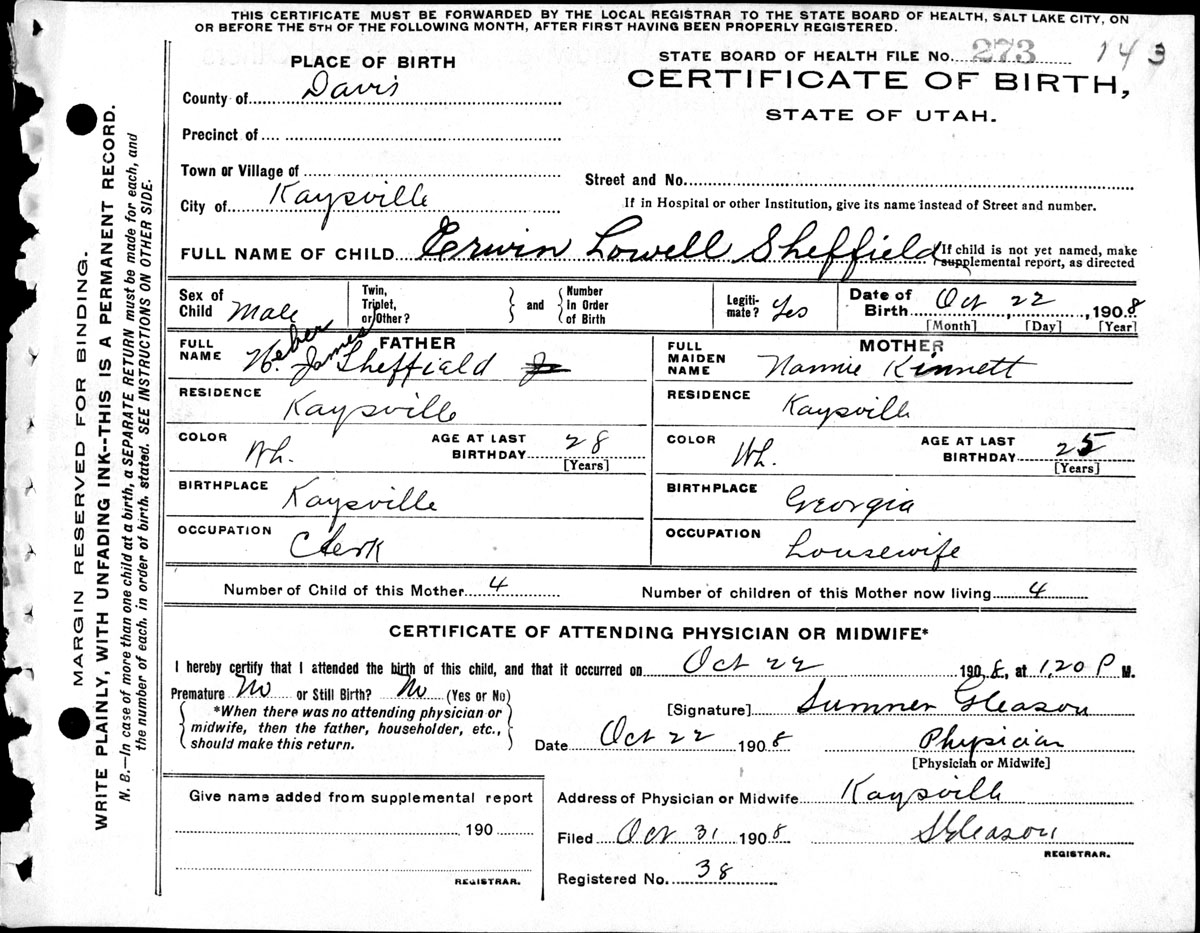 THIS CERTIFICATE MUST BE FORWARDED BY THE LOCAL REGISTRAR TO THE STATE BOARD OF HEALTH, SALT LAKE CITY, ON
OR BEFORE THE 5TH OF THE FOLLOWING MONTH, AFTER FIRST HAVING BEEN PROPERLY REGISTERED.
MARGIN RESERVED FOR BINDING.
WRITE PLAINLY, WITH UNFADING INK--THIS IS A PERMANENT RECORD.
N. B.—In case of more than one child at a birth, a SEPARATE RETURN must be made for each, and
the number of each, in order of birth, stated. SEE INSTRUCTIONS ON OTHER SIDE.
PLACE OF BIRTH
STATE BOARD OF HEALTH FILE No. 273 143
CERTIFICATE OF BIRTH,
STATE OF UTAH.
County of Davis
Precinct of
Town or Village of
City of Kaysville
Street and No.
If in Hospital or other Institution, give its name instead of Street and number.
FULL NAME OF CHILD Erwin Lowell Sheffield
{If child is not yet named, make
supplemental report, as directed
Sex of Child Male
Twin, Triplet, or Other?
and
Number In Order of Birth
Legiti-mate? Yes
Date of Birth Oct 22, 1908
[Month] [Day] [Year]
FATHER
FULL NAME Heber James Sheffield
RESIDENCE Kaysville
COLOR Wh.
AGE AT LAST BIRTHDAY 28
[Years]
BIRTHPLACE Kaysville
OCCUPATION Clerk
MOTHER
FULL MAIDEN NAME Nannie Kinnett
RESIDENCE Kaysville
COLOR Wh.
AGE AT LAST BIRTHDAY 25
[Years]
BIRTHPLACE Georgia
OCCUPATION Housewife
Number of Child of this Mother 4
Number of children of this Mother now living 4
CERTIFICATE OF ATTENDING PHYSICIAN OR MIDWIFE*
I hereby certify that I attended the birth of this child, and that it occurred on Oct 22 1908, at 1,20 P M.
Premature No or Still Birth? No (Yes or No)
*When there was no attending physician or
midwife, then the father, householder, etc.,
should make this return.
[Signature] Sumner Gleason
Date Oct 22 1908
Physician
[Physician or Midwife]
Give name added from supplemental report
190
REGISTRAR.
Address of Physician or Midwife Kaysville
Filed Oct 31 1908
S Gleason
REGISTRAR.
Registered No. 38